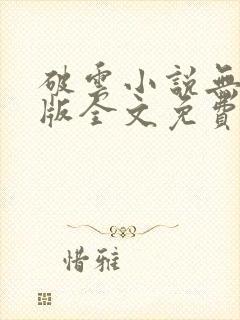 破雲小說無
版全文免費
惜雅